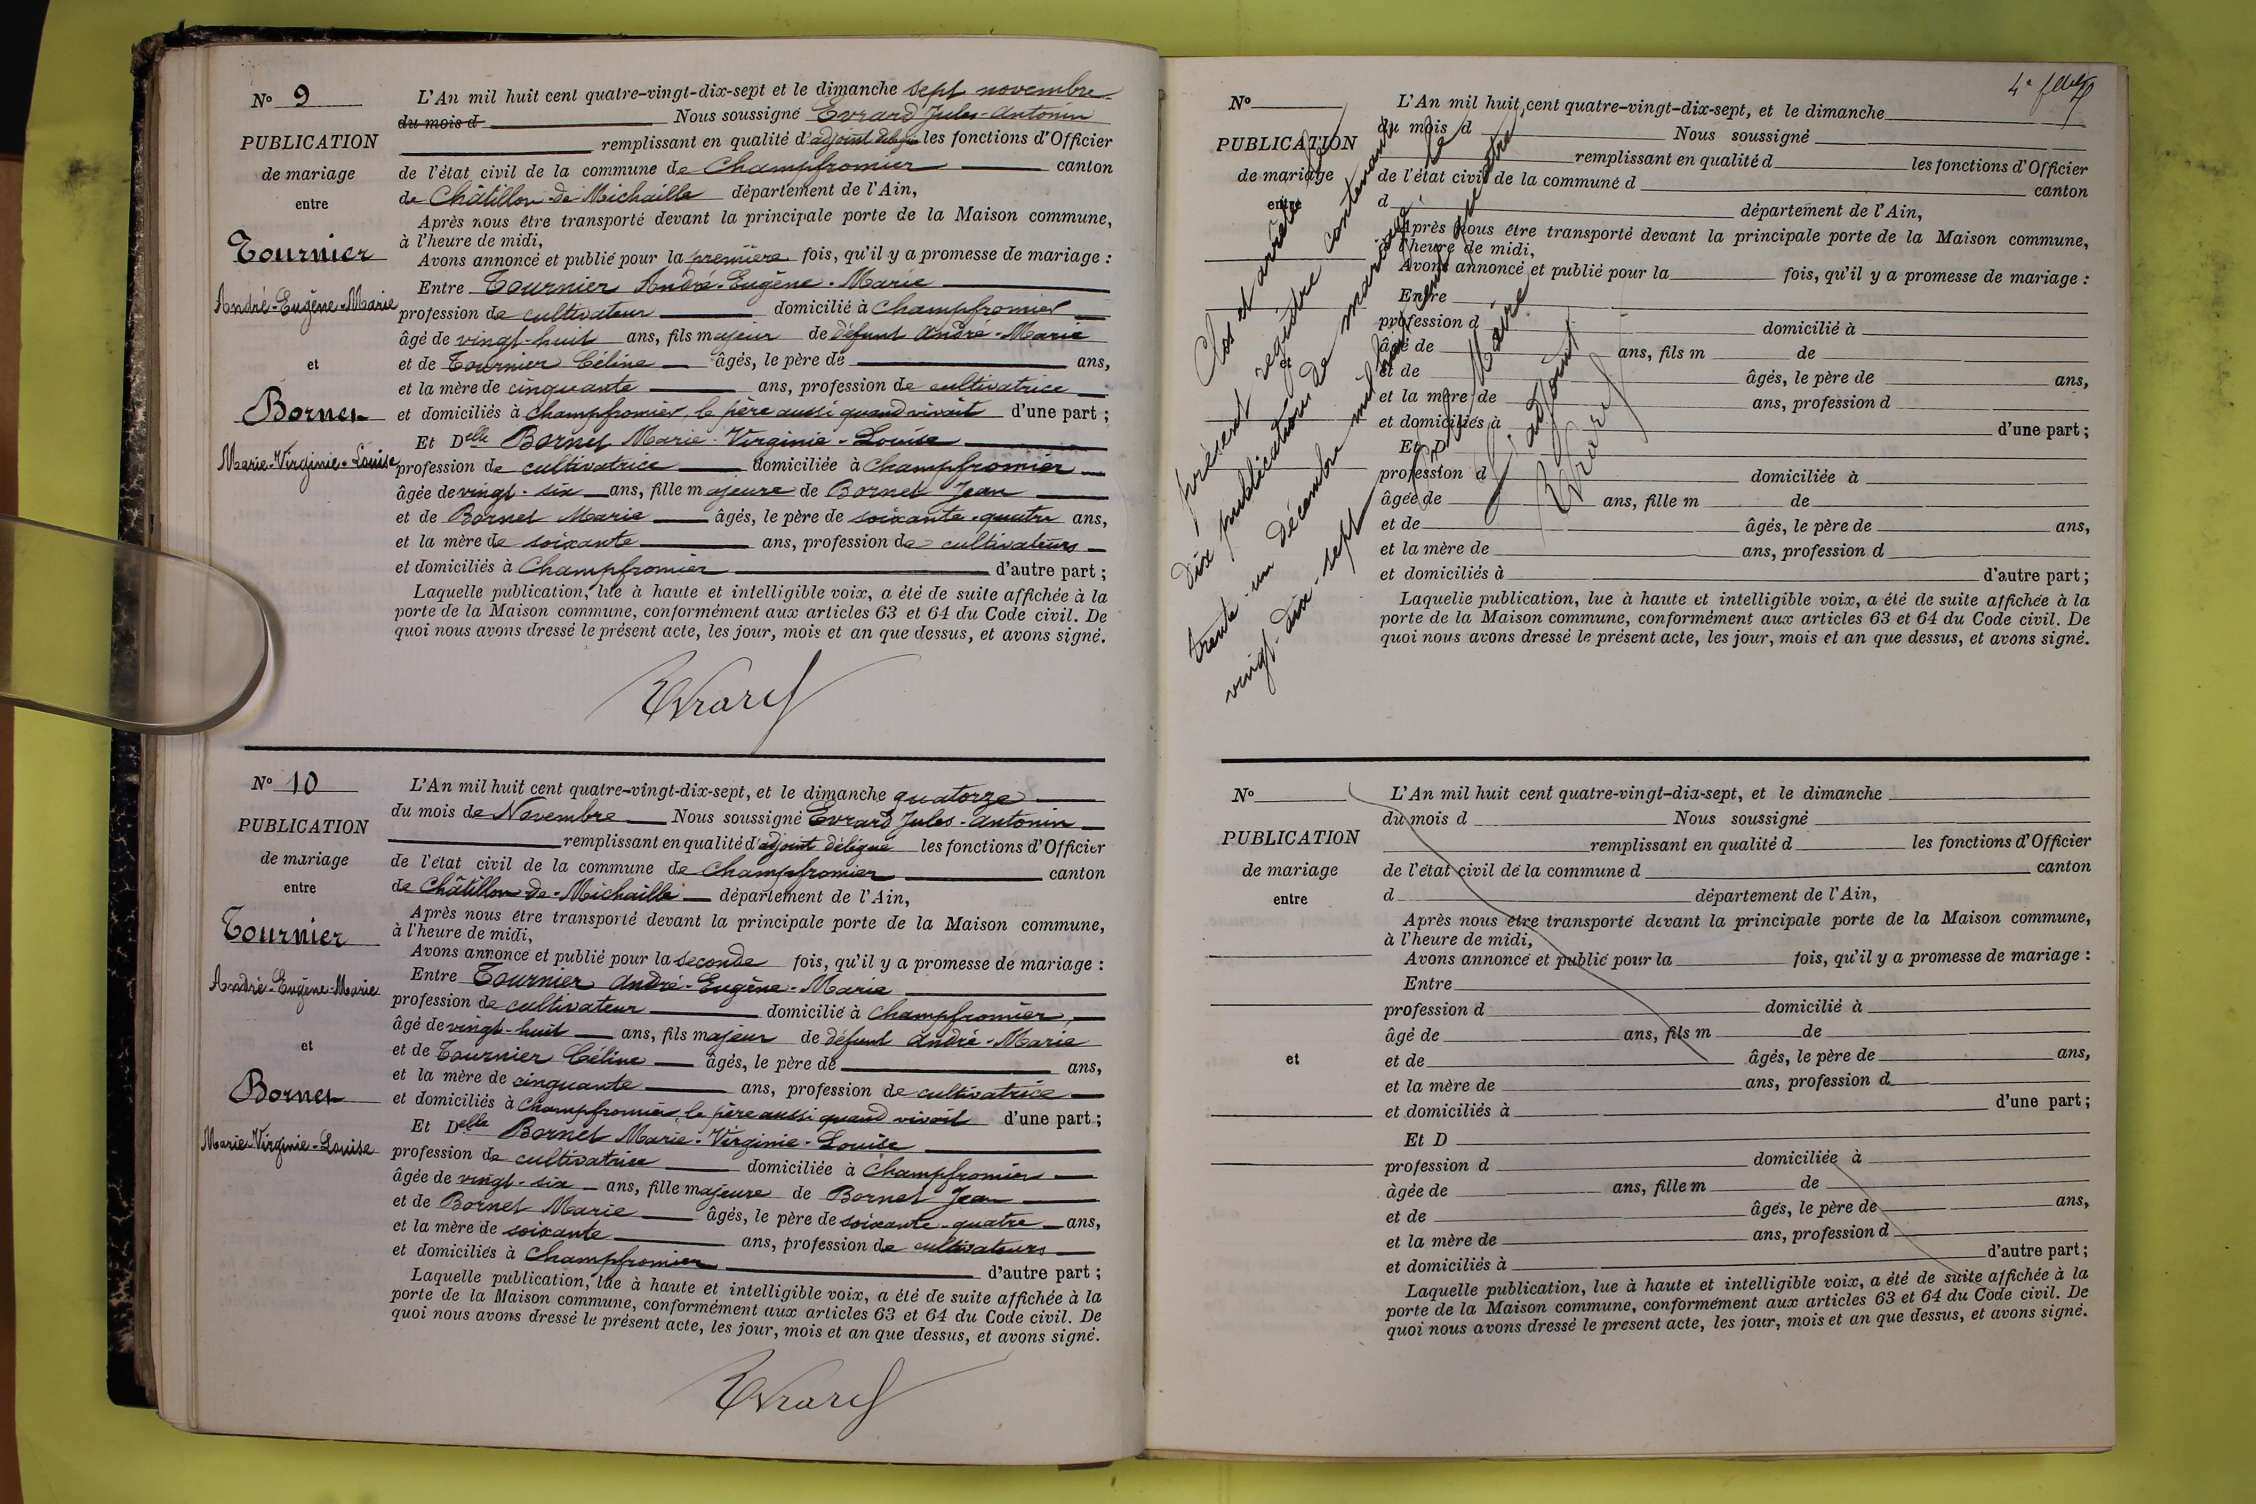 N° 9
PUBLICATION
de mariage
entre
Tournier
André-Eugène-Marie
et
Bornet
Marie-Virginie-Louise
L'An mil huit cent quatre-vingt-dix-sept et le dimanche sept novembre
du mois d Nous soussigné Evrard Jules-Antonin
remplissant en qualité d'adjoint délégué les fonctions d'Officier
de l'état civil de la commune de Champfromier canton
de Châtillon-de-Michaille département de l'Ain,
Après nous être transporté devant la principale porte de la Maison commune,
à l'heure de midi,
Avons annoncé et publié pour la première fois, qu'il y a promesse de mariage :
Entre Tournier André-Eugène-Marie
profession de cultivateur domicilié à Champfromier
âgé de vingt-huit ans, fils majeur de défunt André-Marie
et de Tournier Céline âgés, le père de ans,
et la mère de cinquante ans, profession de cultivatrice
et domiciliés à Champfromier, le père aussi quand vivait d'une part ;
Et Delle Bornet Marie-Virginie-Louise
profession de cultivatrice domiciliée à Champfromier
âgée de vingt-six ans, fille majeure de Bornet Jean
et de Bornet Marie âgés, le père de soixante-quatre ans,
et la mère de soixante ans, profession de cultivateurs
et domiciliés à Champfromier d'autre part ;
Laquelle publication, lue à haute et intelligible voix, a été de suite affichée à la
porte de la Maison commune, conformément aux articles 63 et 64 du Code civil. De
quoi nous avons dressé le présent acte, les jour, mois et an que dessus, et avons signé.
Evrard
N° 10
PUBLICATION
de mariage
entre
Tournier
André-Eugène-Marie
et
Bornet
Marie-Virginie-Louise
L'An mil huit cent quatre-vingt-dix-sept, et le dimanche quatorze
du mois de Novembre Nous soussigné Evrard Jules-Antonin
remplissant en qualité d'adjoint délégué les fonctions d'Officier
de l'état civil de la commune de Champfromier canton
de Châtillon-de-Michaille département de l'Ain,
Après nous être transporté devant la principale porte de la Maison commune,
à l'heure de midi,
Avons annoncé et publié pour la seconde fois, qu'il y a promesse de mariage :
Entre Tournier André-Eugène-Marie
profession de cultivateur domicilié à Champfromier,
âgé de vingt-huit ans, fils majeur de défunt André-Marie
et de Tournier Céline âgés, le père de ans,
et la mère de cinquante ans, profession de cultivatrice
et domiciliés à Champfromier, le père aussi quand vivait d'une part ;
Et Delle Bornet Marie-Virginie-Louise
profession de cultivatrice domiciliée à Champfromier
âgée de vingt-six ans, fille majeure de Bornet Jean
et de Bornet Marie âgés, le père de soixante-quatre ans,
et la mère de soixante ans, profession de cultivateurs
et domiciliés à Champfromier d'autre part ;
Laquelle publication, lue à haute et intelligible voix, a été de suite affichée à la
porte de la Maison commune, conformément aux articles 63 et 64 du Code civil. De
quoi nous avons dressé le présent acte, les jour, mois et an que dessus, et avons signé.
Evrard
N°
PUBLICATION
de mariage
entre
et
L'An mil huit cent quatre-vingt-dix-sept, et le dimanche
du mois d Nous soussigné
remplissant en qualité d les fonctions d'Officier
de l'état civil de la commune d canton
d département de l'Ain,
Après nous être transporté devant la principale porte de la Maison commune,
à l'heure de midi,
Avons annoncé et publié pour la fois, qu'il y a promesse de mariage :
Entre
profession d domicilié à
âgé de ans, fils m de
et de âgés, le père de ans,
et la mère de ans, profession d
et domiciliés à d'une part ;
Et D
profession d domiciliée à
âgée de ans, fille m de
et de âgés, le père de ans,
et la mère de ans, profession d
et domiciliés à d'autre part ;
Laquelle publication, lue à haute et intelligible voix, a été de suite affichée à la
porte de la Maison commune, conformément aux articles 63 et 64 du Code civil. De
quoi nous avons dressé le présent acte, les jour, mois et an que dessus, et avons signé.
Clos et arrêté le
présent registre contenant
dix publications de mariage le
trente-un décembre mil huit cent quatre
vingt-dix-sept
Pour le Maire
L'adjoint
Evrard
N°
PUBLICATION
de mariage
entre
et
L'An mil huit cent quatre-vingt-dix-sept, et le dimanche
du mois d Nous soussigné
remplissant en qualité d les fonctions d'Officier
de l'état civil de la commune d canton
d département de l'Ain,
Après nous être transporté devant la principale porte de la Maison commune,
à l'heure de midi,
Avons annoncé et publié pour la fois, qu'il y a promesse de mariage :
Entre
profession d domicilié à
âgé de ans, fils m de
et de âgés, le père de ans,
et la mère de ans, profession d
et domiciliés à d'une part ;
Et D
profession d domiciliée à
âgée de ans, fille m de
et de âgés, le père de ans,
et la mère de ans, profession d
et domiciliés à d'autre part ;
Laquelle publication, lue à haute et intelligible voix, a été de suite affichée à la
porte de la Maison commune, conformément aux articles 63 et 64 du Code civil. De
quoi nous avons dressé le present acte, les jour, mois et an que dessus, et avons signé.